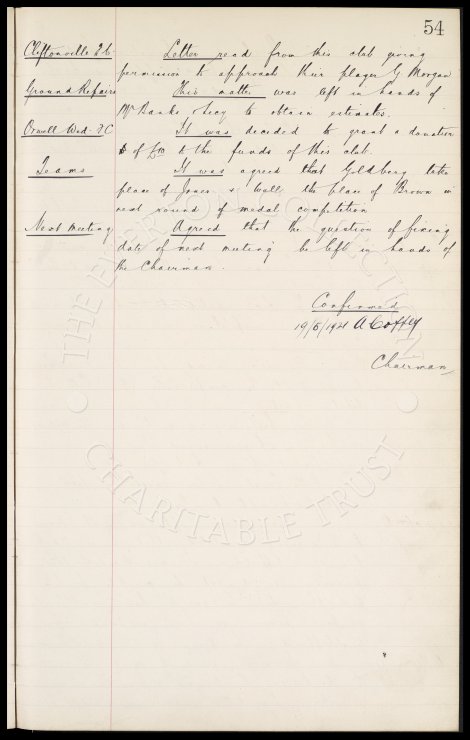 54
Cliftonville F.C. Letter read from this club giving
permission to approach their player G Morgan
Ground Repairs This matter was left in hands of
Mr Banks & Secy to obtain estimates.
Orwell Wed. F.C It was decided to grant a donation
of £10 to the funds of this club.
Teams It was agreed that Goldberg take
place of Jones & the place of Brown in
next round of medal competition
Next Meeting Agreed that the question of fixing
date of next meeting be left in hands of
the Chairman.
Confirmed
19/5/1921 A Coffey
Chairman
THE EVERTON COLLECTION
CHARITABLE TRUST